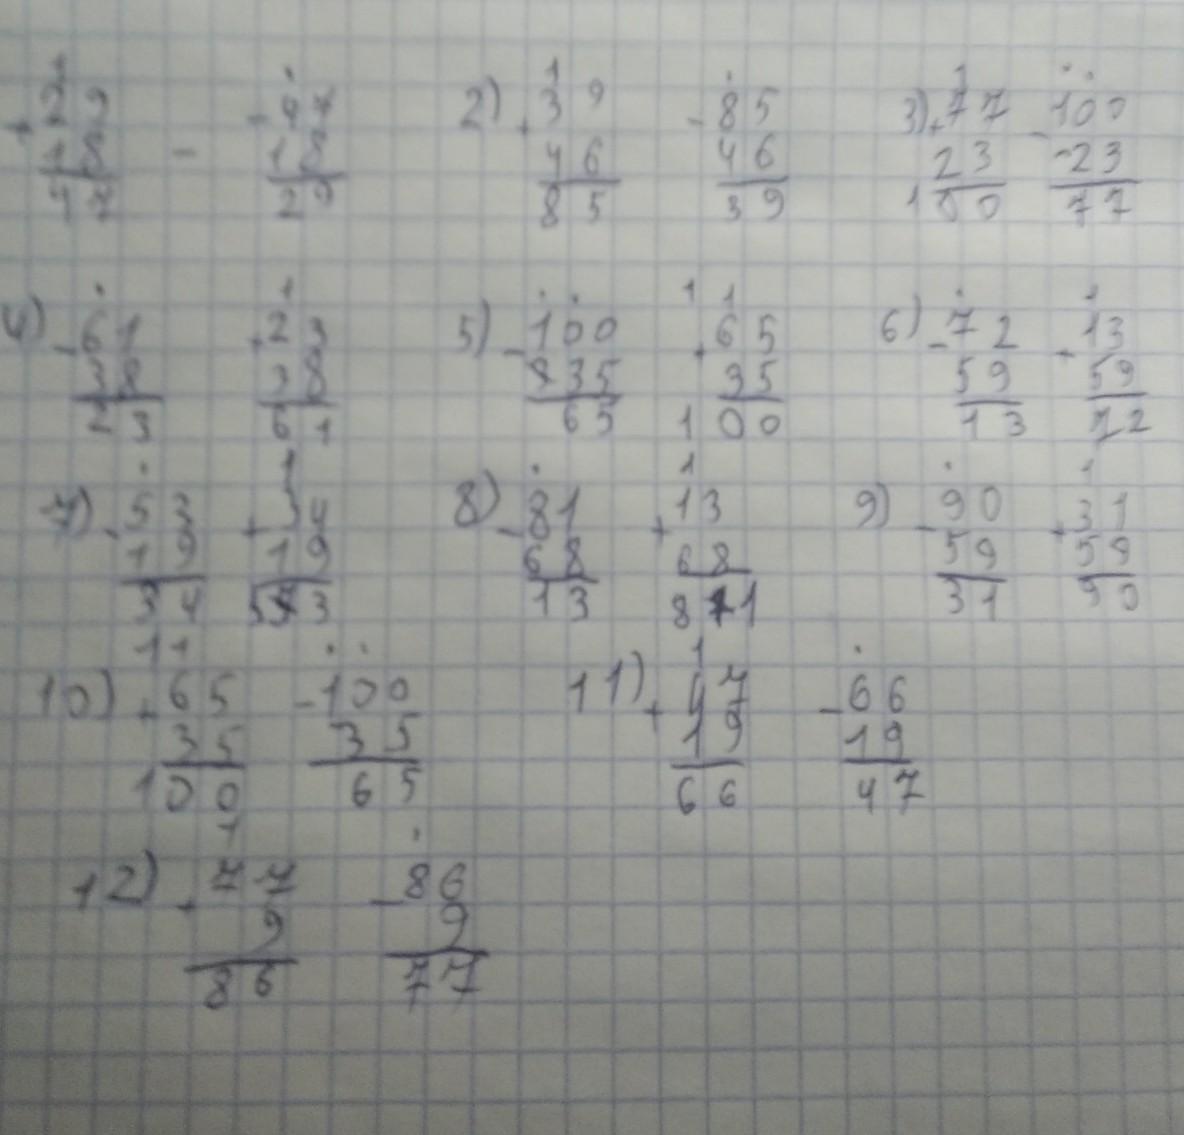 +29 - 47
18 18
47 29
2) +39 -85
46 46
85 39
3) +77 -100
23 -23
100 77
4) -61 +23
38 38
23 61
5) -100 +65
35 35
65 100
6) -72 +13
59 59
13 72
7) -53 +34
19 19
34 53
8) -81 +13
68 68
13 81
9) -90 +31
59 59
31 90
10) +65 -100
35 35
100 65
11) +47 -66
19 19
66 47
12) +77 -86
9 9
86 77